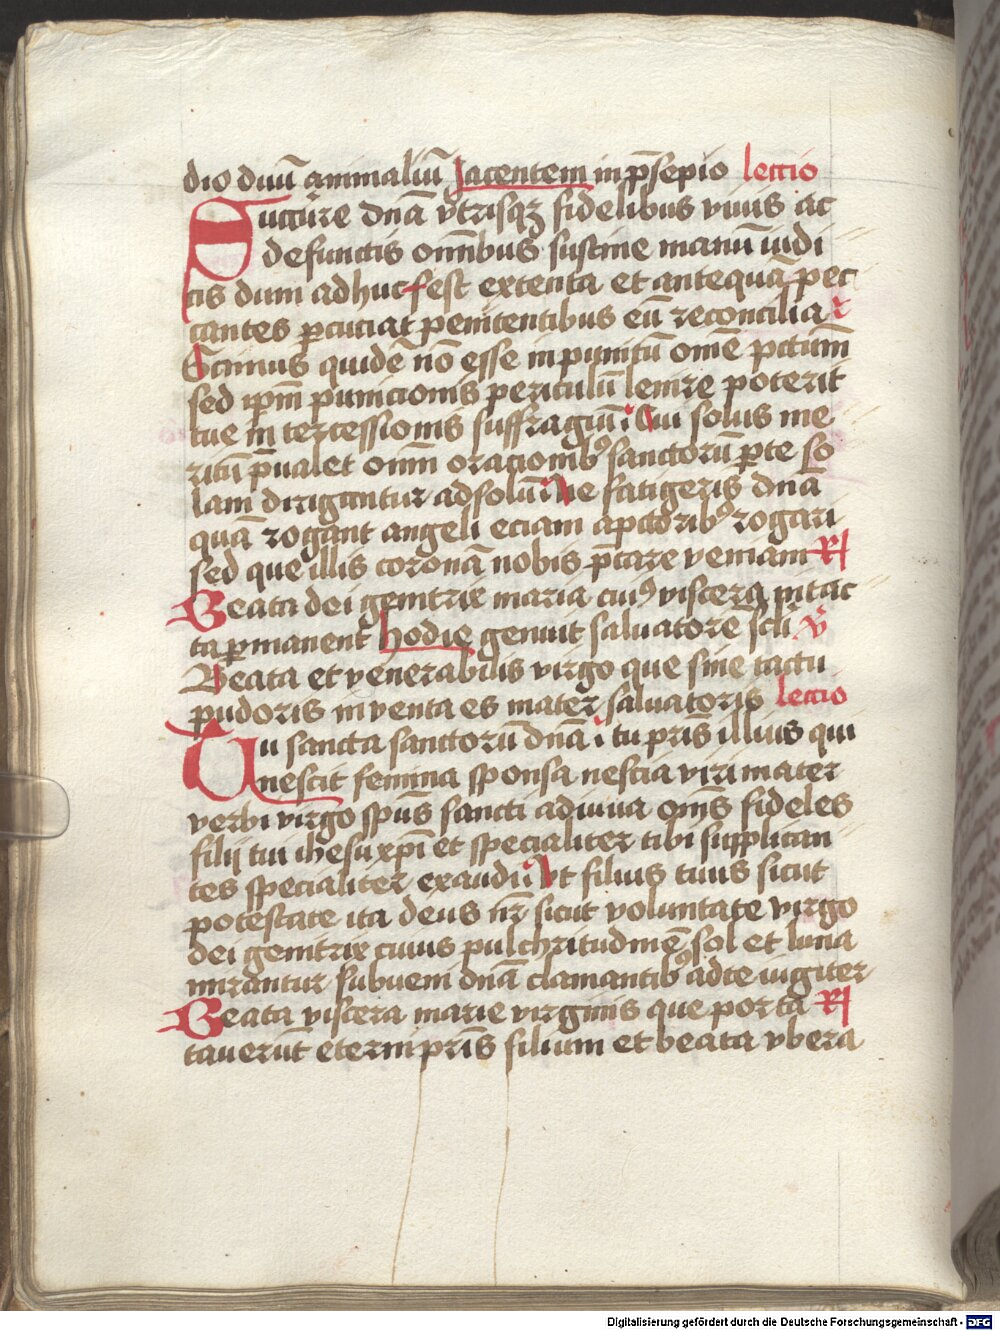 dio duũ animaliũ Jacentem in p̄sepio lectio
Succurre dnā vtrisqꝫ fidelibus viuis ac
defunctis om̄ibus sustine manū iudi
cis dum adhuc est extenta et antequā pec
cantes ꝑcuciat penitentibus eū reconcilia r̄
Scimus quidē nō esse inpunitū om̄e pctūm
sed ip̄m punicionis periculū lenire poterit
tue intercessionis suffragiū Qui solus me
ritū p̄ualet om̄i oracionibꝰ sanctorū ꝑte so
lam diriguntur ad solū Ne fatigeris dnā
quā rogant angeli eciam a pctoribꝰ rogari
sed que illis coronā nobis p̄stare veniam R
Beata dei genitrix maria cuiꝰ viscera intac
ta ꝑmanent hodie genuit saluatorē scli v̄
Beata et venerabilis virgo que sine tactu
pudoris inventa es mater saluatoris lectio
Tu sancta sanctorū dnā tu pr̄is illius qui
nescit femina sponsa nescia viri mater
verbi virgo spūs sancti adiuua om̄s fideles
filij tui ihesu xp̄i et specialiter tibi supplican
tes specialiter exaudi Vt filius tuus sicut
potestate ita deus nr̄ sicut voluntate virgo
dei genitrix cuius pulchritudinē sol et luna
mirantur subueni dnā clamantibꝰ ad te iugiter
Beata viscera marie virginis que porta R
tauerūt eterni pr̄is filium et beata vbera
Digitalisierung gefördert durch die Deutsche Forschungsgemeinschaft - DFG